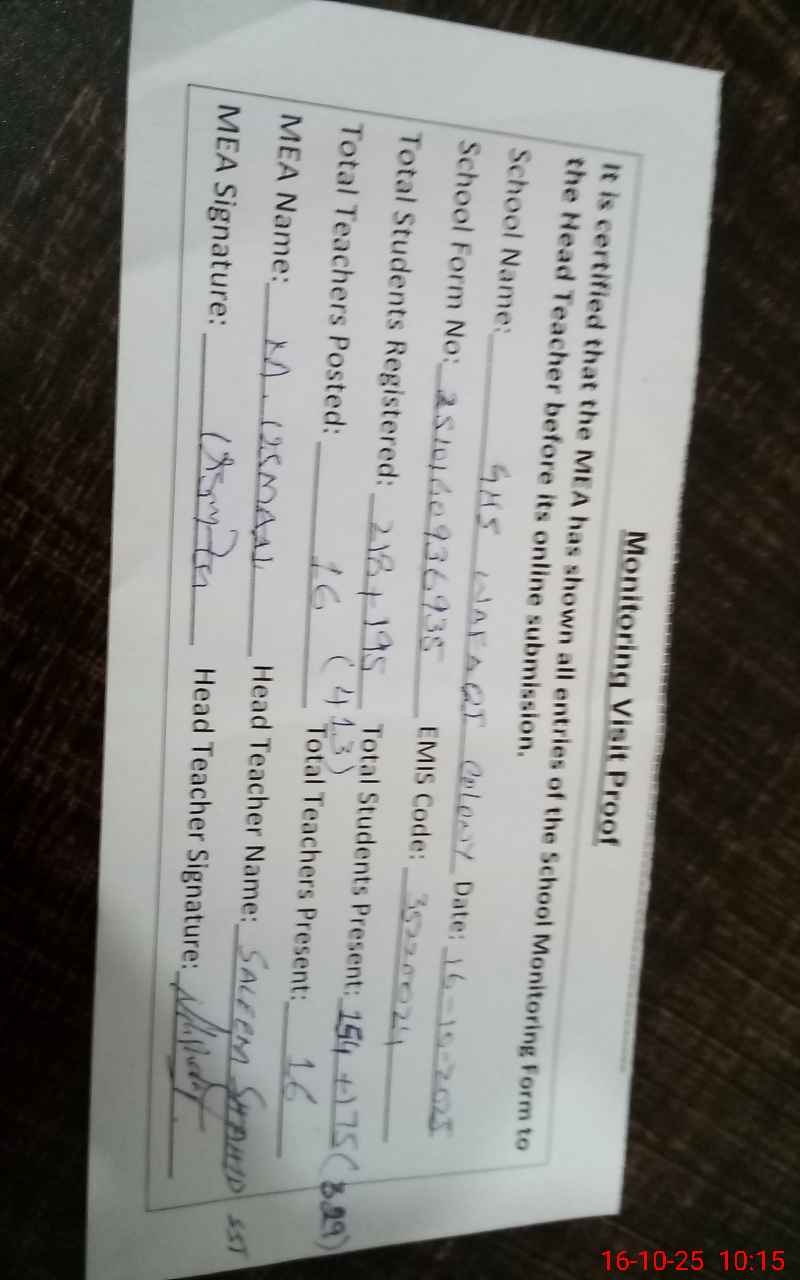 Monitoring Visit Proof
It is certified that the MEA has shown all entries of the School Monitoring Form to
the Head Teacher before its online submission.
School Name: GHS WAFAQI Colony Date: 16-10-2025
School Form No: 2510160936935 EMIS Code: 35220024
Total Students Registered: 218+195 Total Students Present: 154+175 (329)
(413)
Total Teachers Posted: 16 Total Teachers Present: 16
MEA Name: M. USMAN Head Teacher Name: SALEEM SHAHID SST
MEA Signature: Usman Head Teacher Signature:
16-10-25 10:15